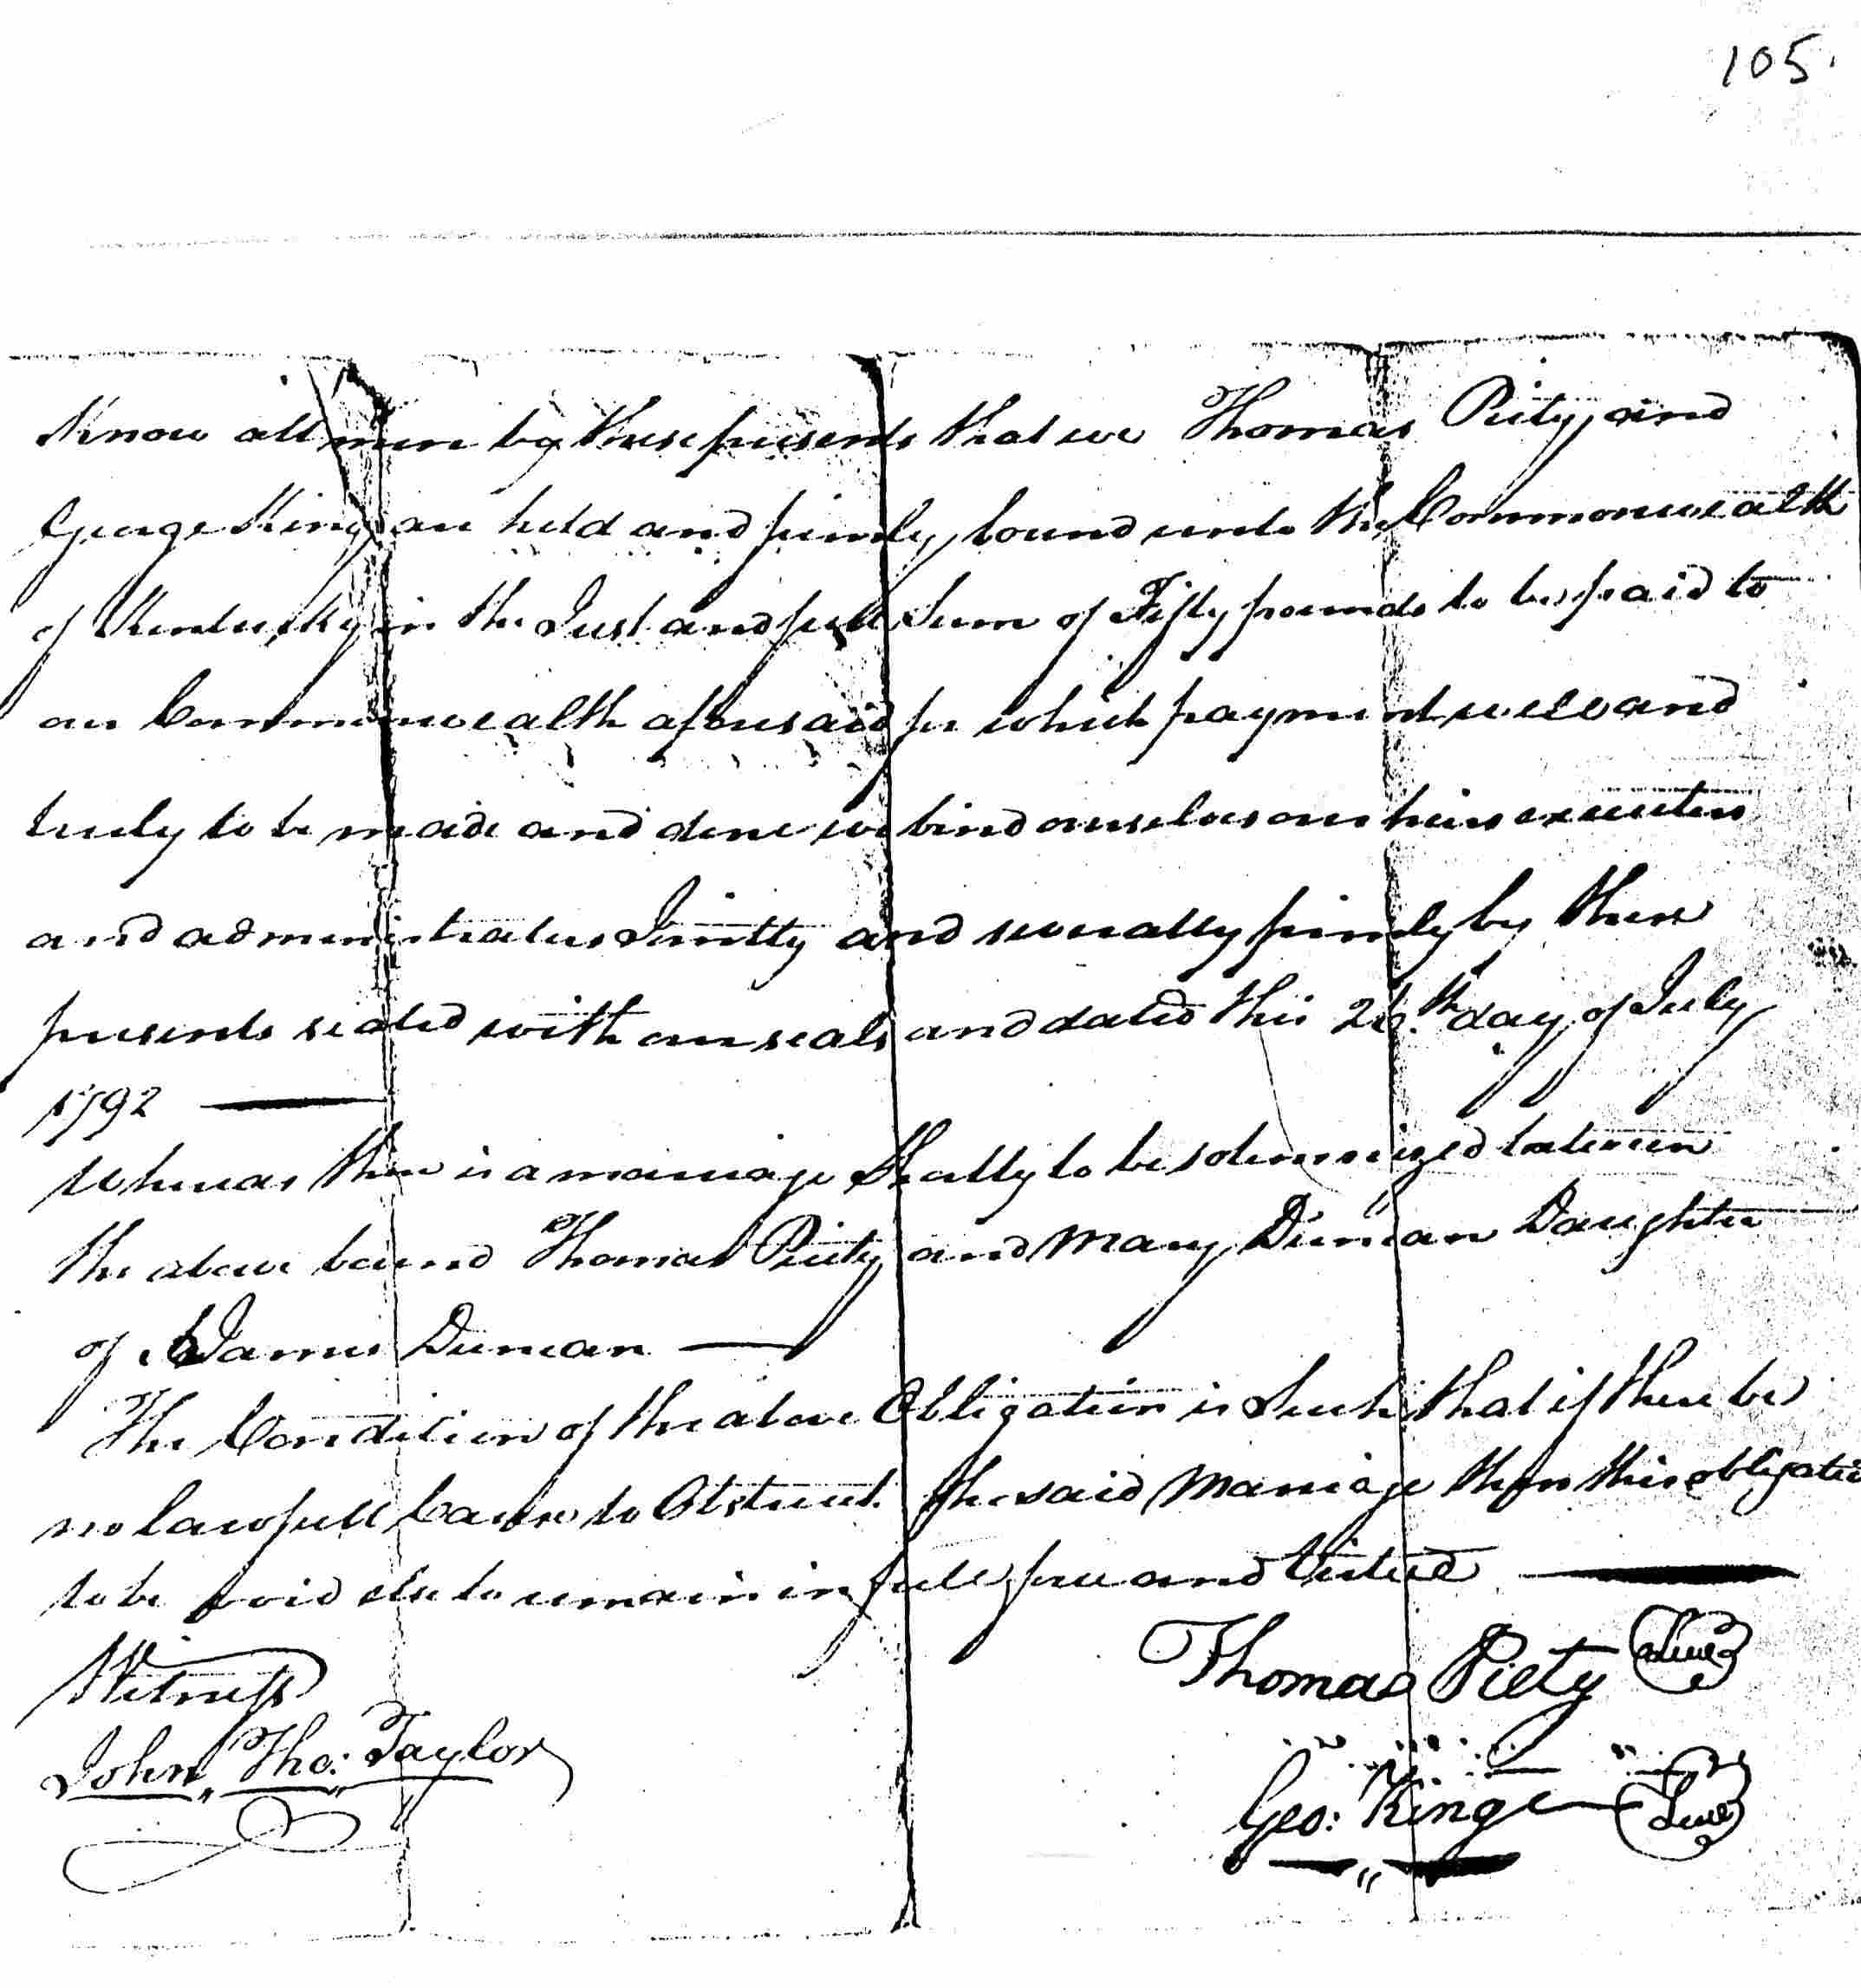 105.
Know all men by these presents that we Thomas Piety and
George King are held and firmly bound unto the Commonwealth
of Kentucky in the Just and full Sum of Fifty pounds to be paid to
our Commonwealth aforesaid for which payment well and
truly to be made and done we bind ourselves our heirs executors
and administrators Jointly and severally firmly by these
presents sealed with our seals and dated this 26.th day of July
1792
Whereas there is a marriage Shortly to be solemnized between
the above bound Thomas Piety and Mary Duncan Daughter
of James Duncan
The Condition of the above Obligation is Such that if there be
no lawfull Cause to Obstruct the said Marriage then this obligatio
to be void else to remain in full force and Virtue
Witness
John Tho: Taylor
Thomas Piety Seal
Geo: King Seal